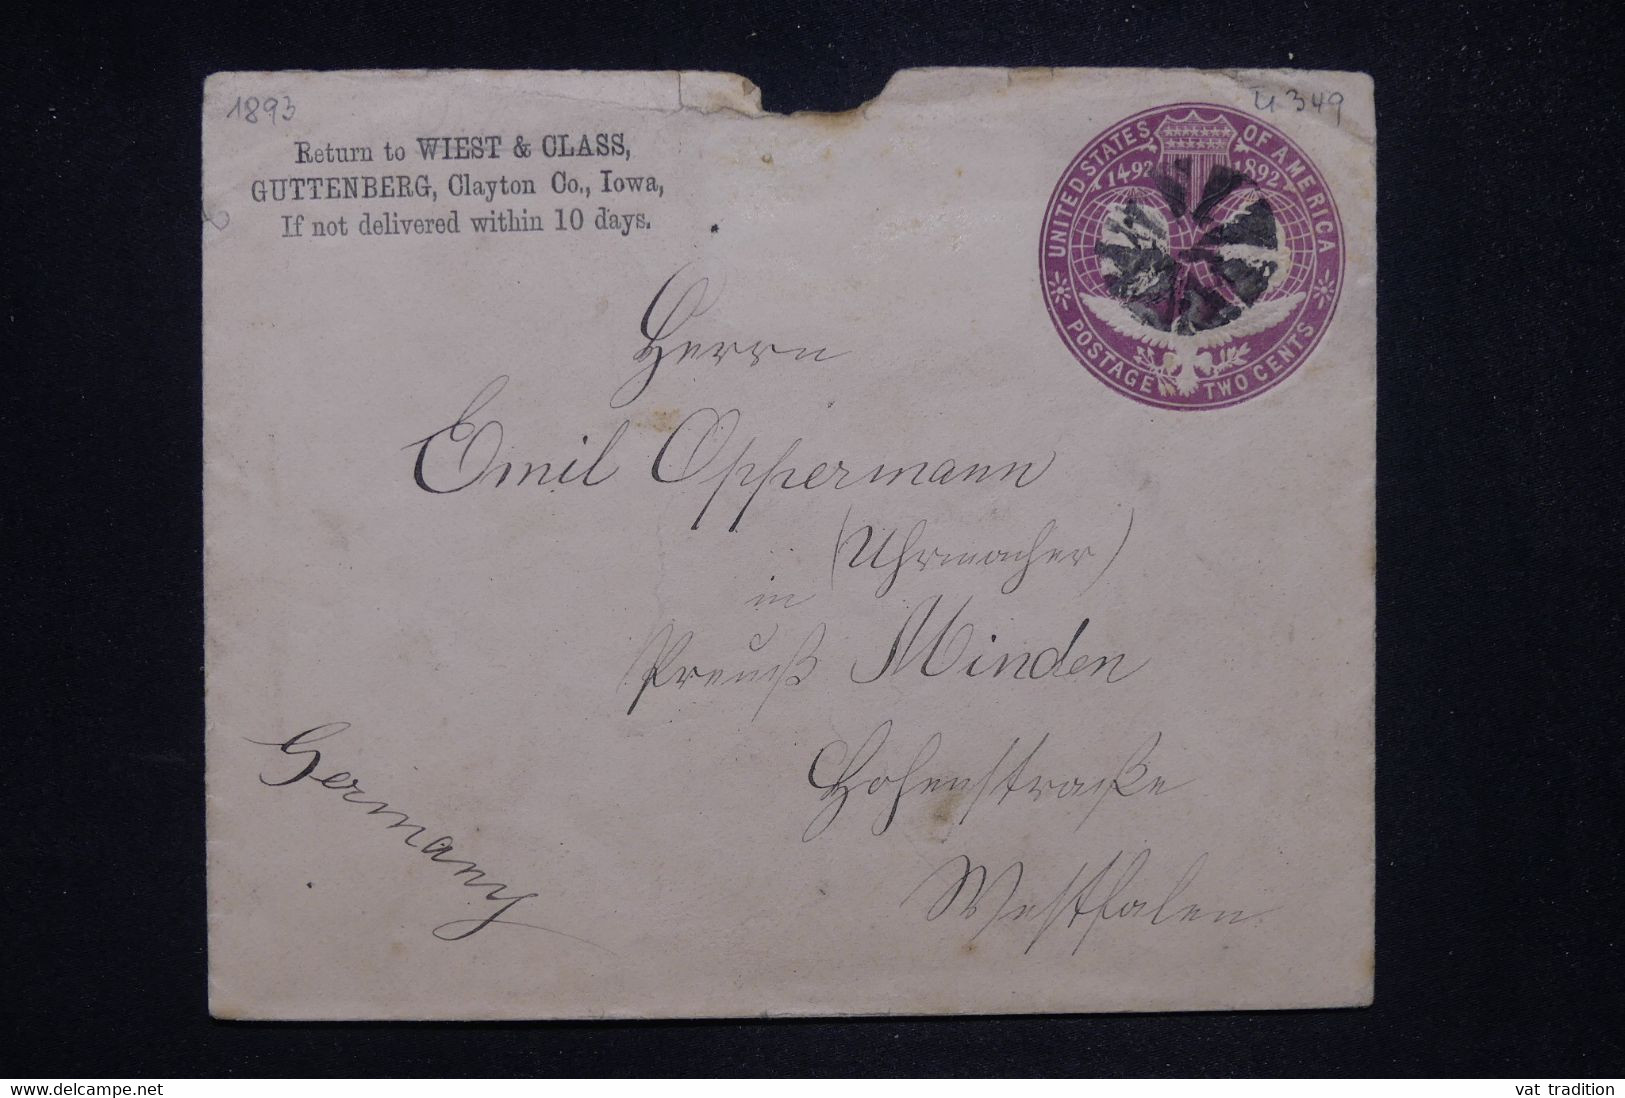 1893
U 349
Return to WIEST & CLASS,
GUTTENBERG, Clayton Co., Iowa,
If not delivered within 10 days.
UNITED STATES OF AMERICA
1492 1892
POSTAGE TWO CENTS
Herrn
Emil Oppermann
(Uhrmacher)
in
Preuß Minden
Hohenstraße
Westfalen
Germany
www.delcampe.net
vat_tradition